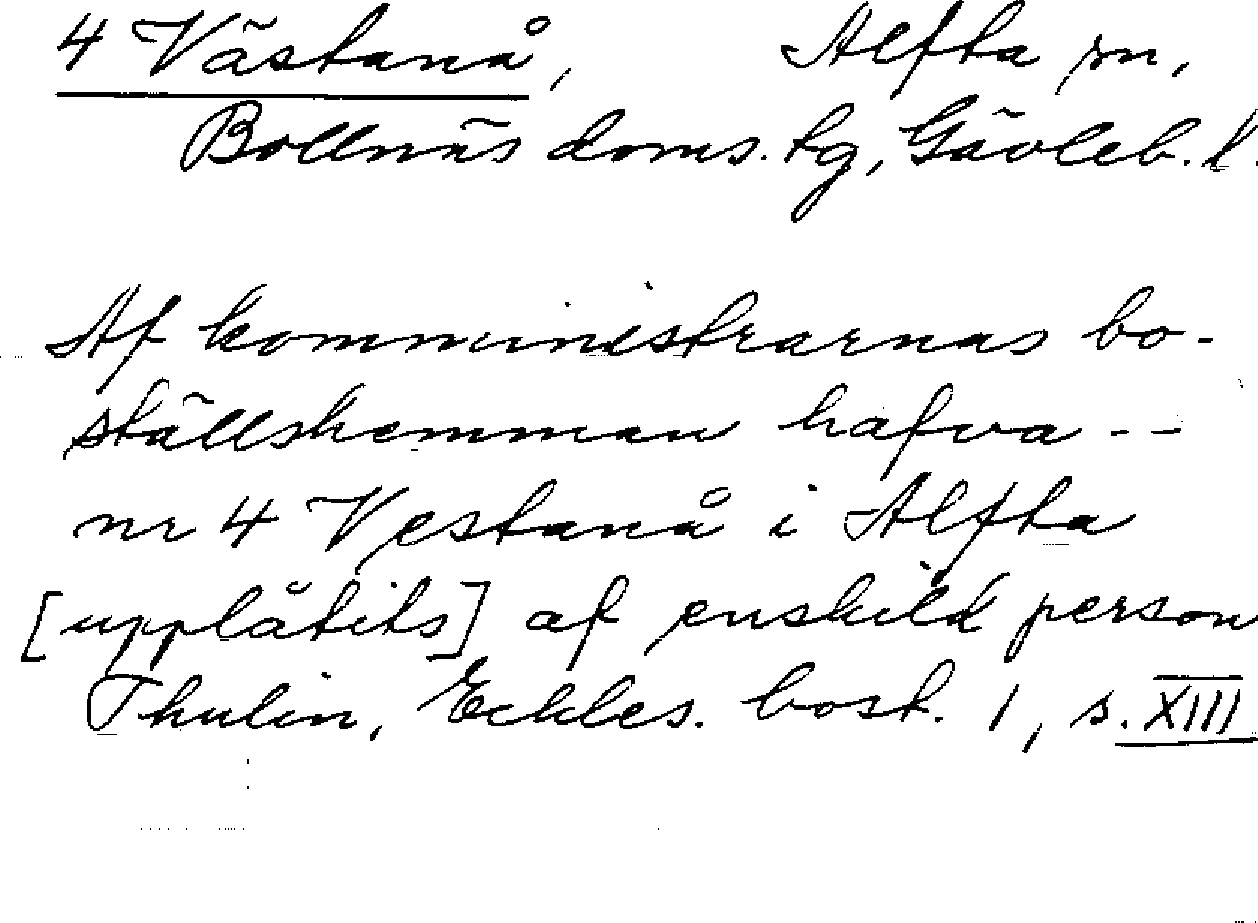 4 Västanå, Alfta sn,
Bollnäs doms. tg, Gävleb. l.
Af komministrarnas bo-
ställshemman hafva --
nr 4 Vestanå i Alfta
[upplåtits] af enskild person
Thulin, Eckles. bost. 1, s. XIII